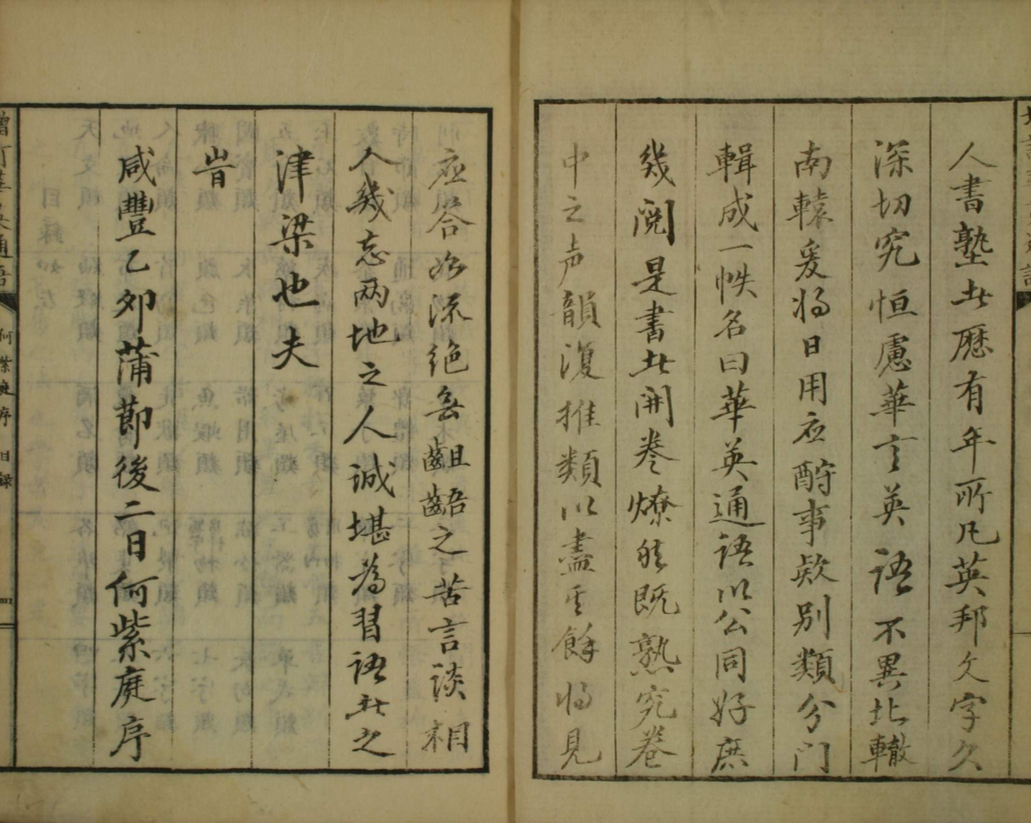 人書塾者歷有年所凡英邦文字久
深切究恒慮華言英語不異北轍
南轅爰將日用应酧事欵別類分门
輯成一帙名曰華英通語以公同好庶
幾閱是書者開卷燎然既熟究卷
中之声韻復推類以盡其餘將見
应答如流絕無齟齬之苦言談相
人幾忘兩地之人誠堪為習語者之
津梁也夫
旹
咸豐乙夘蒲節後二日何紫庭序
何紫庭序 目錄